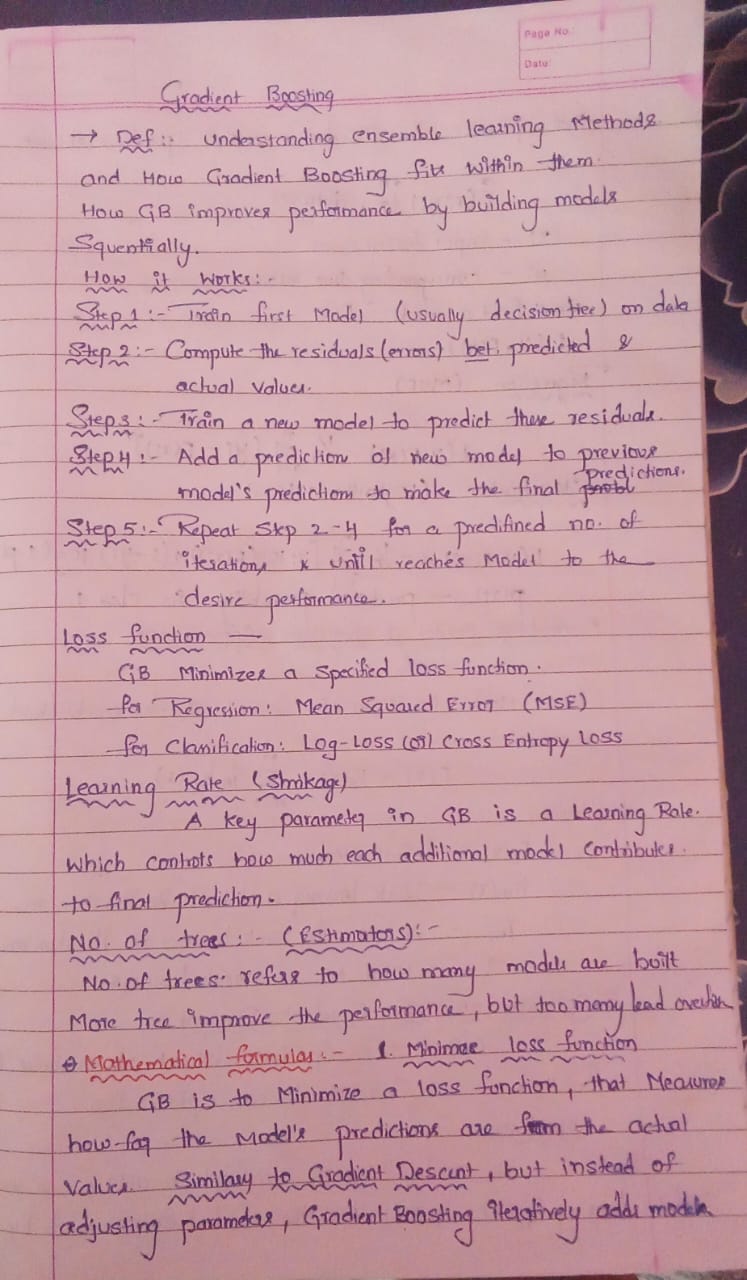 Page No.:
Date:
Gradient Boosting
→ Def:- Understanding ensemble learning Methods
and How Gradient Boosting fits within them
How GB improves performance by building models
Squentially.
How it works:-
Step 1:- Train first Model (usually decision tree) on data
Step 2:- Compute the residuals (errors) bet. predicted &
actual values.
Step 3:- Train a new model to predict these residuals.
Step 4:- Add a prediction of new model to previous
model's prediction to make the final predictions.
Step 5:- Repeat Step 2-4 for a predifined no. of
iterations until reaches Model to the
desire performance.
Loss function —
GB Minimizes a specified loss function.
for Regression: Mean Squared Error (MSE)
for Classification: Log-Loss (or) Cross Entropy Loss
Learning Rate (Shrikage)
A key parameter in GB is a Learning Rate.
which controls how much each additional model contributes.
to final prediction.
No. of trees:- (Estimators):-
No. of trees. refers to how many models are built
More tree improve the performance, but too many lead
Mathematical formulas:- 1. Minimze loss function
GB is to Minimize a loss function, that Measures
how-far the Model's predictions are from the actual
values. Similary to Gradient Descent, but instead of
adjusting parameters, Gradient Boosting iteratively adds models